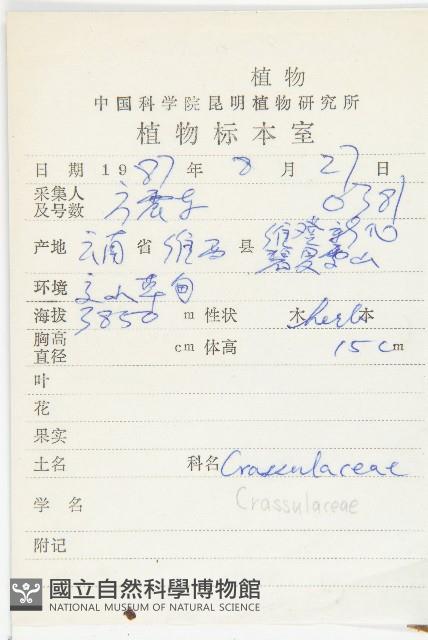 植物
中国科学院昆明植物研究所
植物标本室
日 期 1987 年 8 月 27 日
采集人
及号数 方震东 0381
产地 云南 省 维西 县 维登新化
碧罗雪山
环境 草甸
海拔 3850 m 性状 木 herb 本
胸高
直径 cm 体高 15 cm
叶
花
果实
土名 科名 Crassulaceae
学 名 Crassulaceae
附记
國立自然科學博物館
NATIONAL MUSEUM OF NATURAL SCIENCE